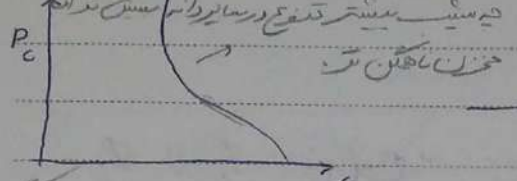 چه شیب بیشتر تنوع در سایز دانه
P_c
مخزن ناهمگن تر.